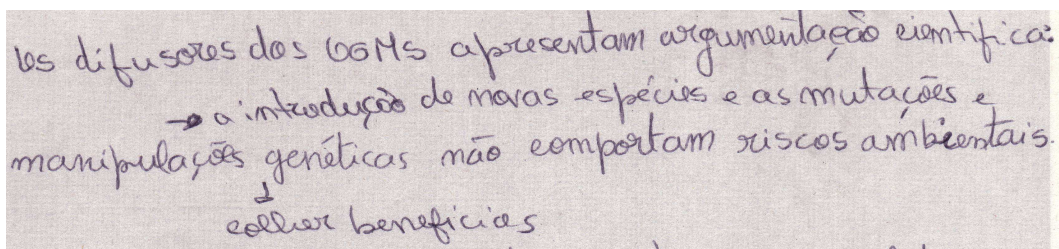 Os difusores dos OGMs apresentam argumentação científica:
→ a introdução de novas espécies e as mutações e
manipulações genéticas não comportam riscos ambientais.
↓
colher benefícios